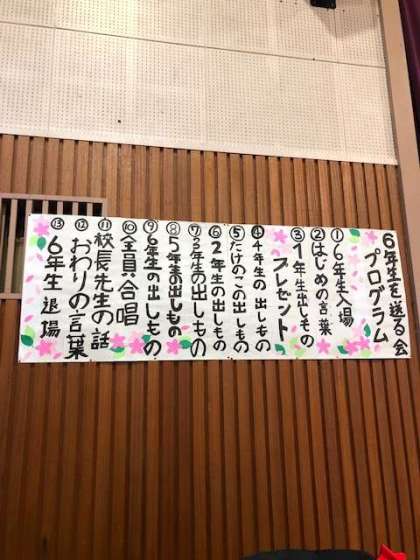 6年生を送る会
プログラム
①6年生入場
②はじめの言葉
③1年生出しもの
プレゼント
④4年生の出しもの
⑤たけのこの出しもの
⑥2年生の出しもの
⑦3年生の出しもの
⑧5年生の出しもの
⑨6年生の出しもの
⑩全員合唱
⑪校長先生の話
⑫おわりの言葉
⑬6年生退場